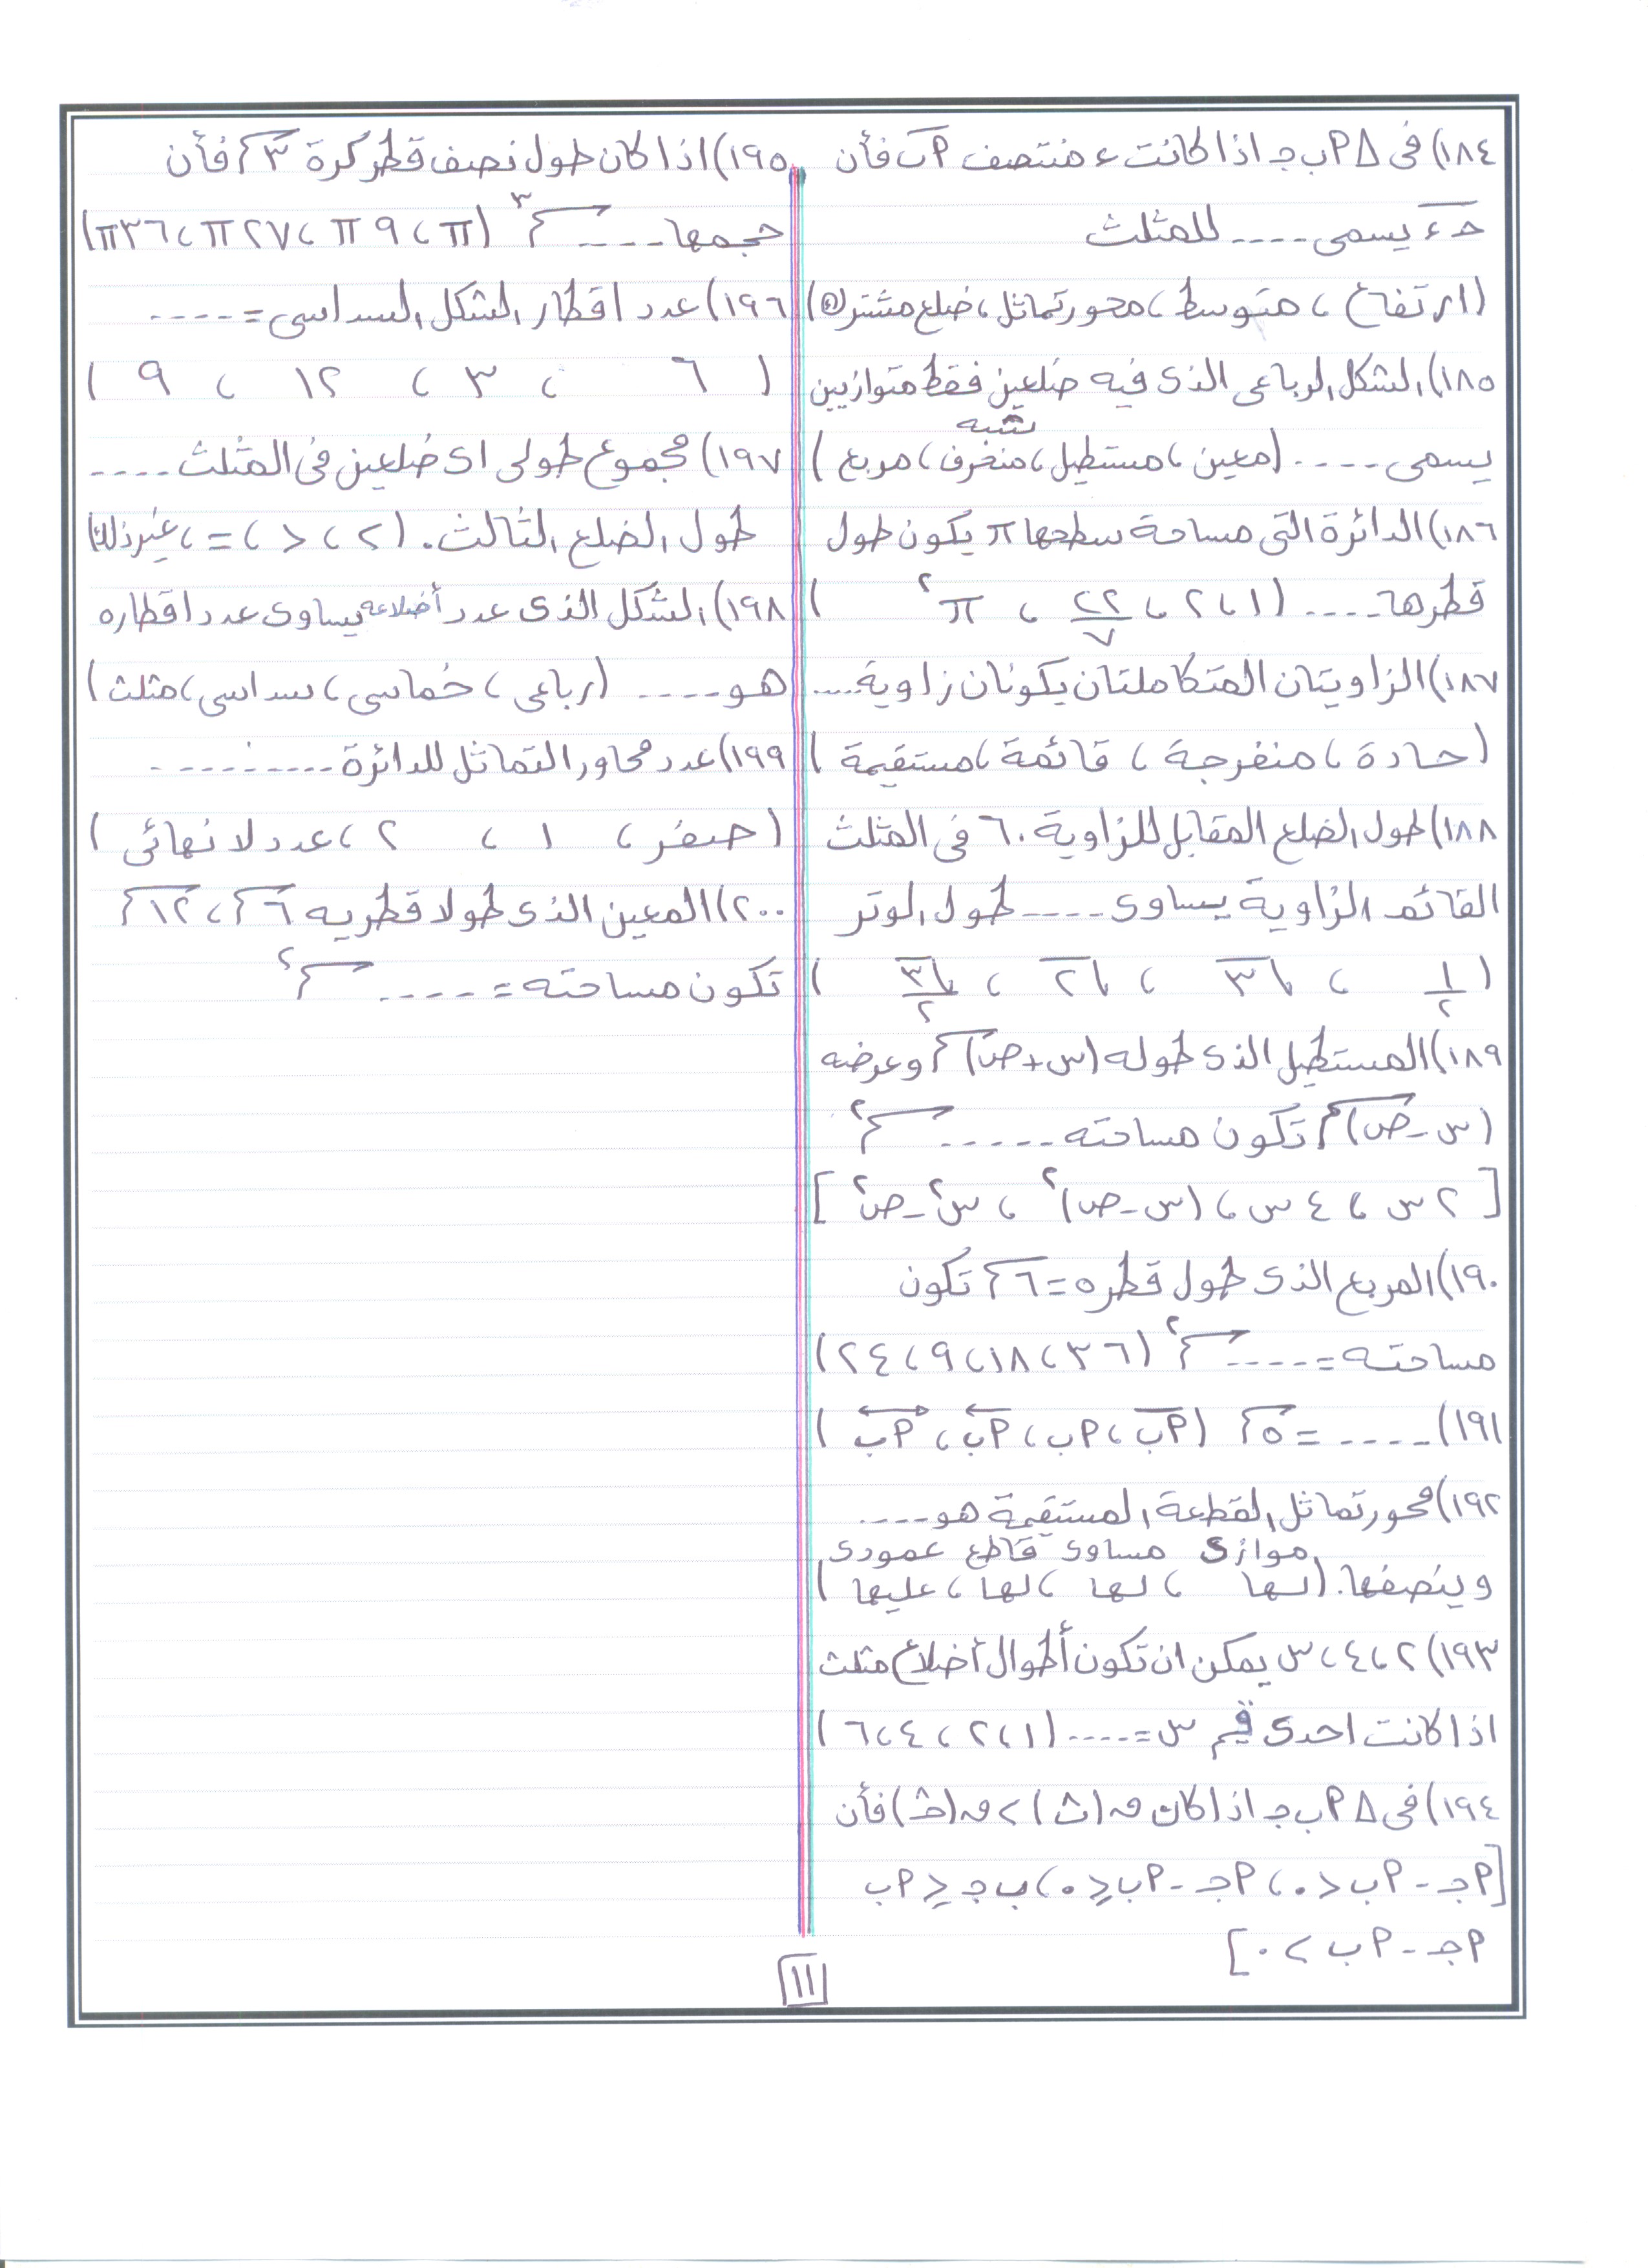 ١٨٤) فى △ أ ب جـ اذا كانت ء منتصف أب فأن
جـ ء يسمى .... للمثلث
(ارتفاع ، متوسط ، محور تماثل ، ضلع مشترك)
١٨٥) الشكل الرباعى الذى فيه ضلعين فقط متوازيين
يسمى .... (معين ، مستطيل ، شبه منحرف ، مربع)
١٨٦) الدائرة التى مساحة سطحها π يكون طول
قطرها .... (١ ، ٢ ، ٢٢/٧ ، π²)
١٨٧) الزاويتان المتكاملتان يكونان زاوية ....
(حادة ، منفرجة ، قائمة ، مستقيمة)
١٨٨) طول الضلع المقابل للزاوية ٦٠ فى المثلث
القائم الزاوية يساوى .... طول الوتر
(١/٢ ، √٣ ، √٢ ، √٣/٢)
١٨٩) المستطيل الذى طوله (س + ص) سم وعرضه
(س - ص) سم تكون مساحته ..... سم²
[٢ س ، ٤ س ، (س - ص)² ، س² - ص²]
١٩٠) المربع الذى طول قطره = ٦ سم تكون
مساحته = .... سم² (٣٦ ، ١٨ ، ٩ ، ٢٤)
١٩١) .... = ٥ سم (أب ، أب ، أب ، أب)
١٩٢) محور تماثل القطعة المستقيمة هو ....
وينصفها. (موازى لها ، مساوى لها ، قاطع لها ، عمودى عليها)
١٩٣) ٢ ، ٤ ، س يمكن ان تكون أطوال أضلاع مثلث
اذا كانت احدى قيم س = .... (١ ، ٢ ، ٤ ، ٦)
١٩٤) فى △ أ ب جـ اذا كان ق(ب) > ق(جـ) فأن
[أجـ - أب < ٠ ، أجـ - أب ≤ ٠ ، ب جـ ≤ أب
أجـ - أب > ٠]
١٩٥) اذا كان طول نصف قطر كرة ٣ سم فأن
حجمها .... سم³ (π ، ٩π ، ٢٧π ، ٣٦π)
١٩٦) عدد اقطار الشكل السداسى = ....
(٦ ، ٣ ، ١٢ ، ٩)
١٩٧) مجموع طولى اى ضلعين فى المثلث ....
طول الضلع الثالث. (> ، < ، = ، غير ذلك)
١٩٨) الشكل الذى عدد أضلاعه يساوى عدد اقطاره
هو .... (رباعى ، خماسى ، سداسى ، مثلث)
١٩٩) عدد محاور التماثل للدائرة ..........
(صفر ، ١ ، ٢ ، عدد لا نهائى)
٢٠٠) المعين الذى طولا قطريه ٦ سم ، ١٢ سم
تكون مساحته = .... سم²
١١